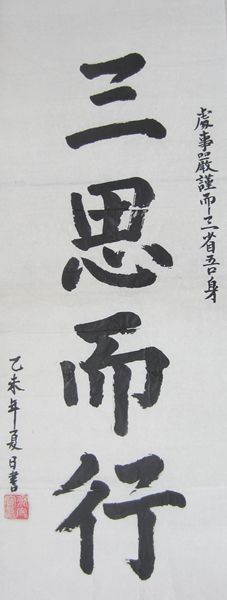 處事嚴謹而三省吾身
三思而行
乙未年夏日書